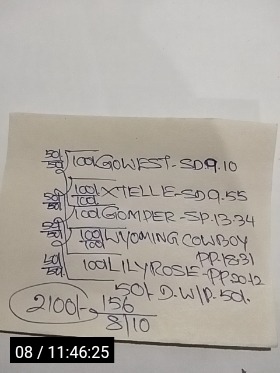 50/- 50/- 100/- GOWEST-SD9.10
100/- XTELLE-SD9.55
50/- 50/- 100/-
100/- GOMPER-SP.13.34
50/- 50/- 100/- WYOMING COWBOY
100/- PP.18.31
50/- 100/- LILYROSE-PP20.12
50/- D.W/P. 50/-
2100/- 156
8/10
08 / 11:46:25